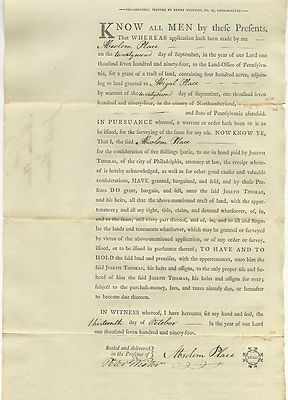 PHILADELPHIA: PRINTED BY
KNOW ALL MEN by these Presents,
That WHEREAS application hath been made by me
Absolom Place
on the twenty second day of September, in the year of our Lord one
thousand seven hundred and ninety-four, to the Land-Office of Pennsylva-
nia, for a grant of a tract of land, containing four hundred acres, adjoin-
ing to land granted to Abigal Place
by warrant of the twenty second day of September, one thousand seven
hundred and ninety-four, in the county of Northumberland,
and state of Pennsylvania aforesaid.
IN PURSUANCE whereof, a warrant or order hath been or is to
be issued, for the surveying of the same for my use. NOW KNOW YE,
That I, the said Absolom Place
for the consideration of five shillings specie, to me in hand paid by JOSEPH
THOMAS, of the city of Philadelphia, attorney at law, the receipt where-
of is hereby acknowledged, as well as for other good causes and valuable
considerations, HAVE granted, bargained, and sold, and by these Pre-
sents DO grant, bargain, and sell, unto the said JOSEPH THOMAS,
and his heirs, all that the above-mentioned tract of land, with the appur-
tenances; and all my right, title, claim, and demand whatsoever, of, in,
and to the same, and every part thereof, and of, in, and to all and singu-
lar the lands and tenements whatsoever, which may be granted or surveyed
by virtue of the above-mentioned application, or of any order or survey,
issued, or to be issued in pursuance thereof; TO HAVE AND TO
HOLD the said land and premises, with the appurtenances, unto him the
said JOSEPH THOMAS, his heirs and assigns, to the only proper use and be-
hoof of him the said JOSEPH THOMAS, his heirs and assigns for ever;
subject to the purchase-money, fees, and taxes already due, or hereafter
to become due thereon.
IN WITNESS whereof, I have hereunto set my hand and seal, the
thirteenth day of October in the year of our Lord
one thousand seven hundred and ninety-four.
Sealed and delivered
in the Presence of
Absolom Place
SEAL
Peter